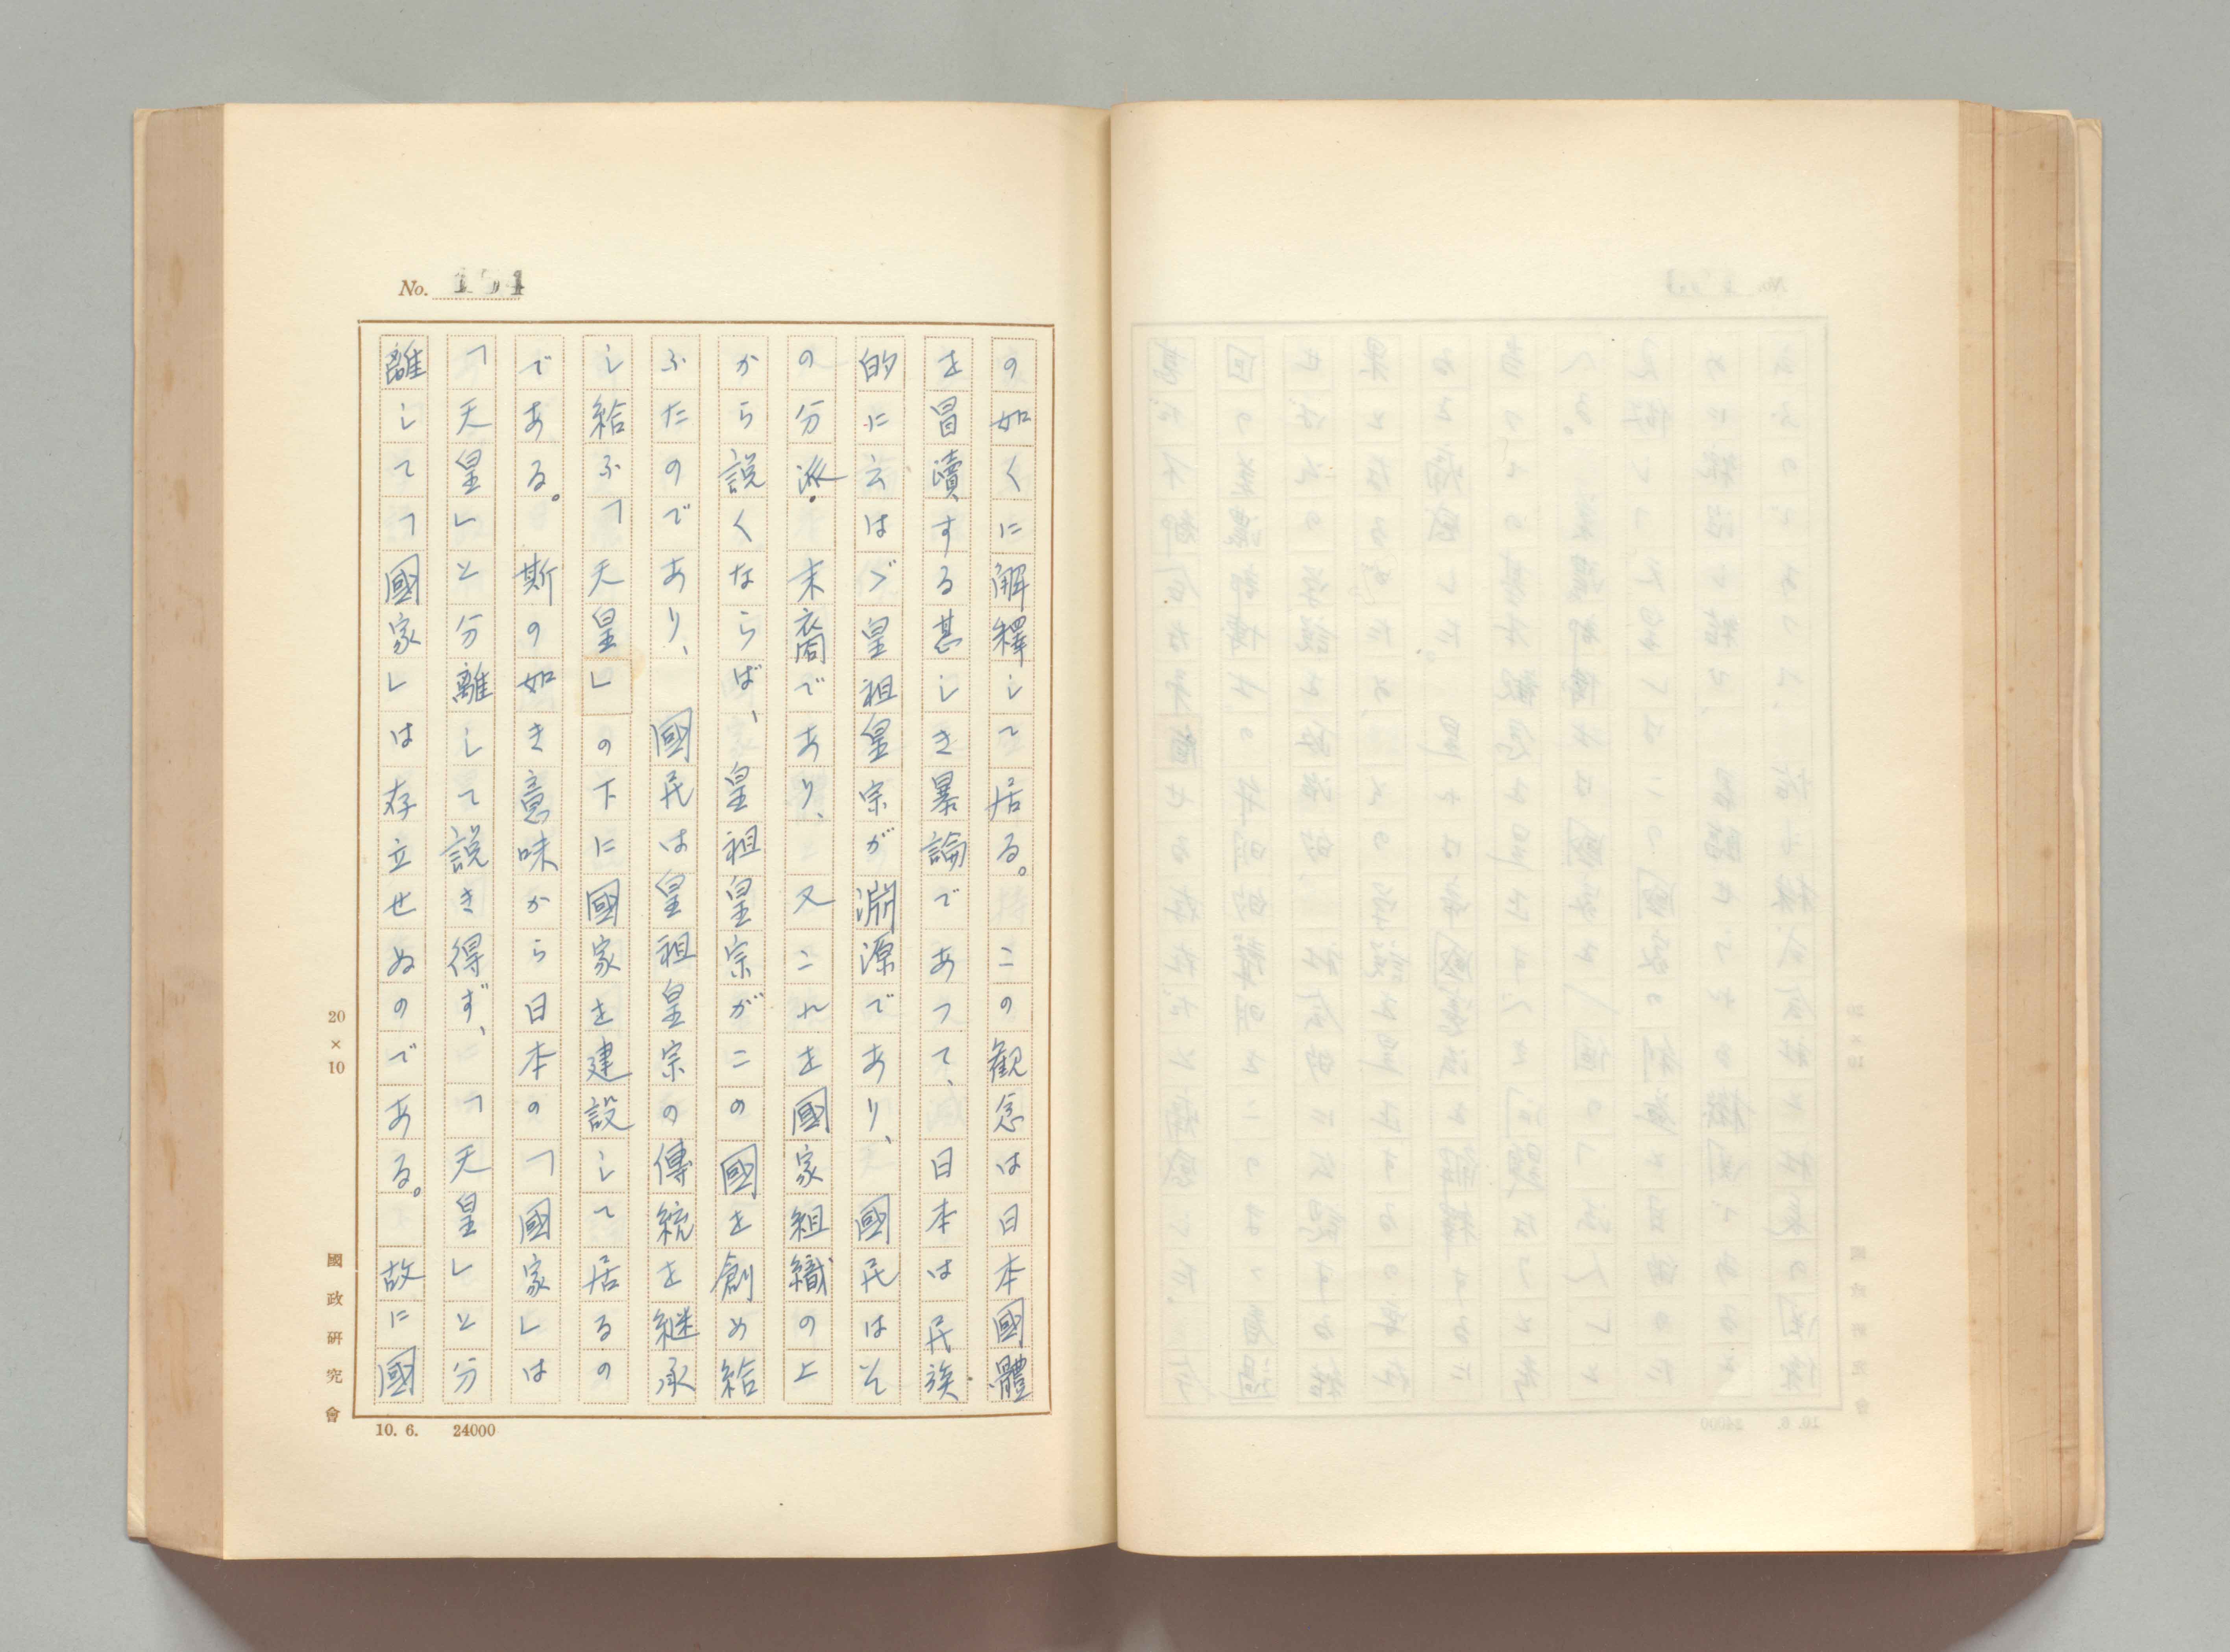 No. 154
の如くに解釋して居る。この観念は日本國體
を冒瀆する甚しき暴論であつて、日本は民族
的に云はゞ皇祖皇宗が淵源であり、國民はそ
の分派。末裔であり、又これを國家組織の上
から説くならば、皇祖皇宗がこの國を創め給
ふたのであり、國民は皇祖皇宗の傳統を継承
し給ふ「天皇」の下に國家を建設して居るの
である。斯の如き意味から日本の「國家」は
「天皇」と分離して説き得ず、「天皇」と分
離して「國家」は存立せぬのである。故に國
20×10
國政研究會
10. 6. 24000